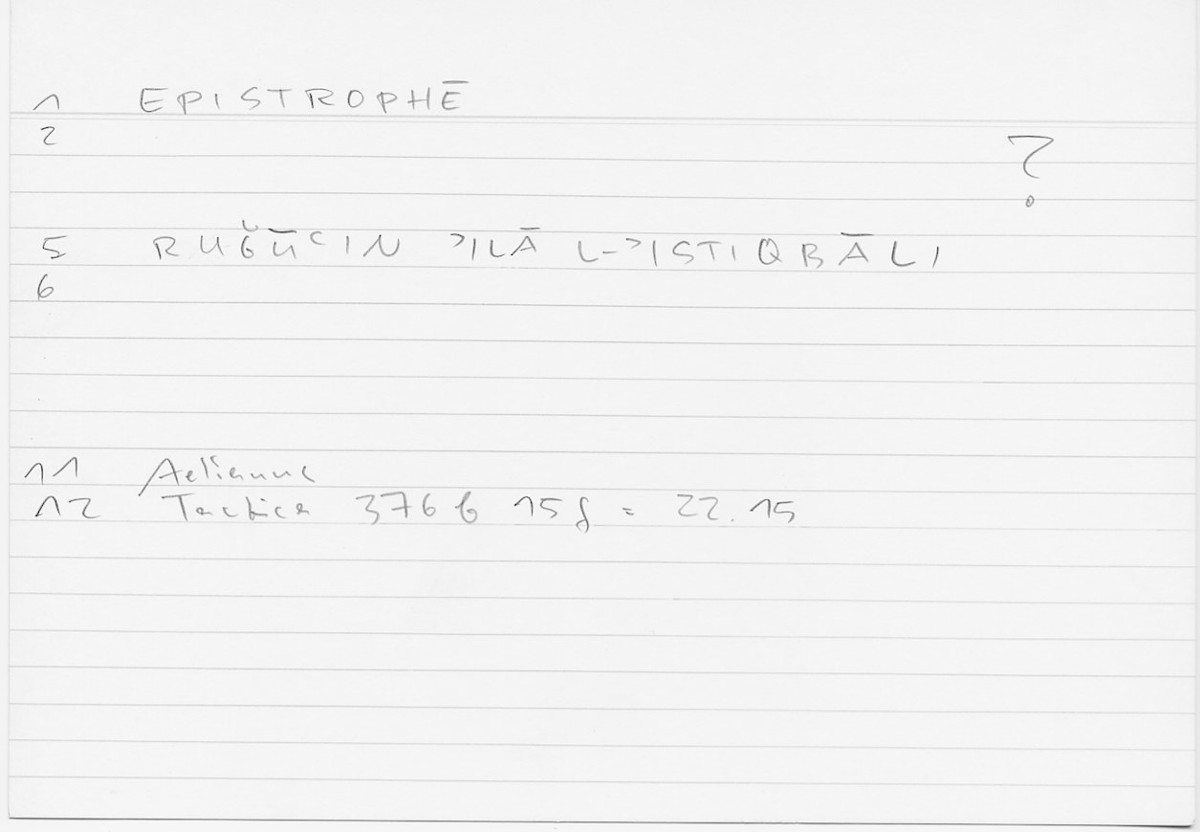 1 EPISTROPHĒ
2
?
5 RUǦŪʿIN ʾILĀ L-ʾISTIQBĀLI
6
11 Aelianus
12 Tactica 376 b 15 f = 22.15